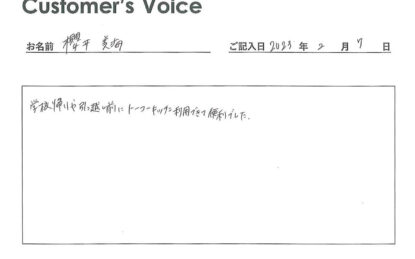 Customer's Voice
お名前 櫻井 美海 ご記入日 2023 年 2 月 7 日
学校帰りや引っ越し前にトランクキッチン利用できて便利でした。